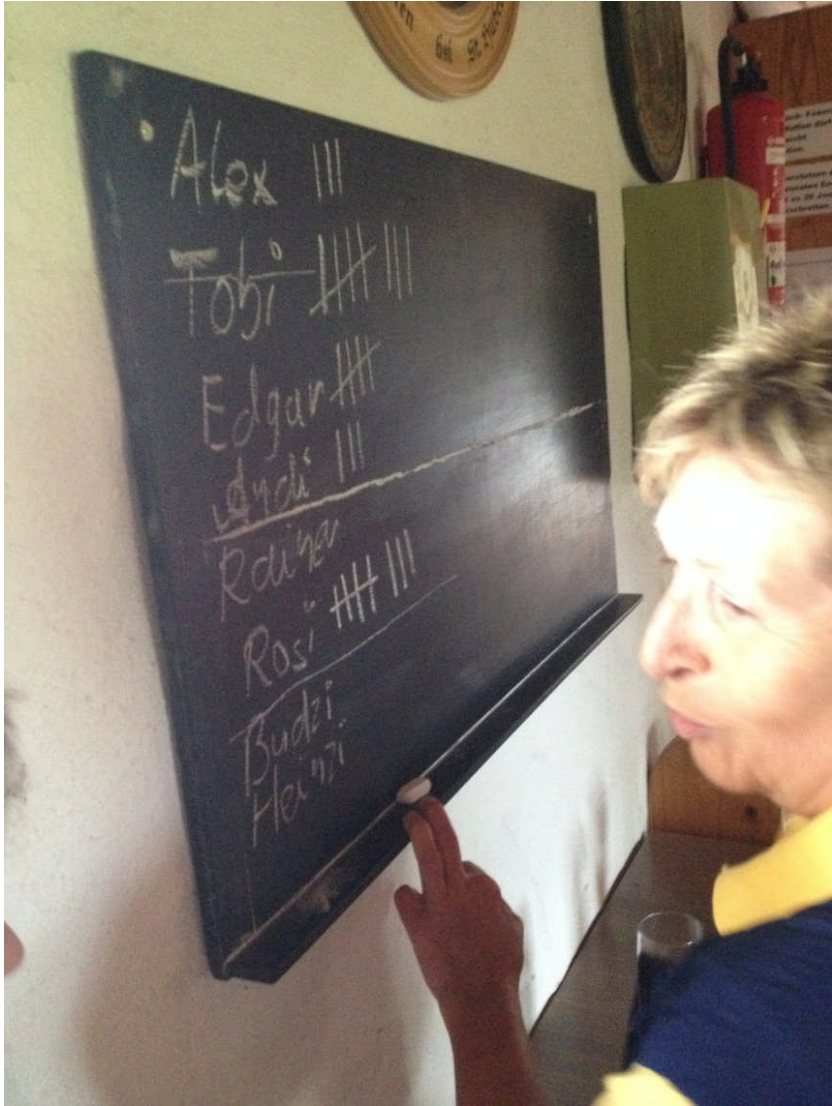 Alex |||
Tobi 卌 |||
Edgar 卌
Andi |||
Rainer
Rosi 卌 |||
Budzi
Heinzi